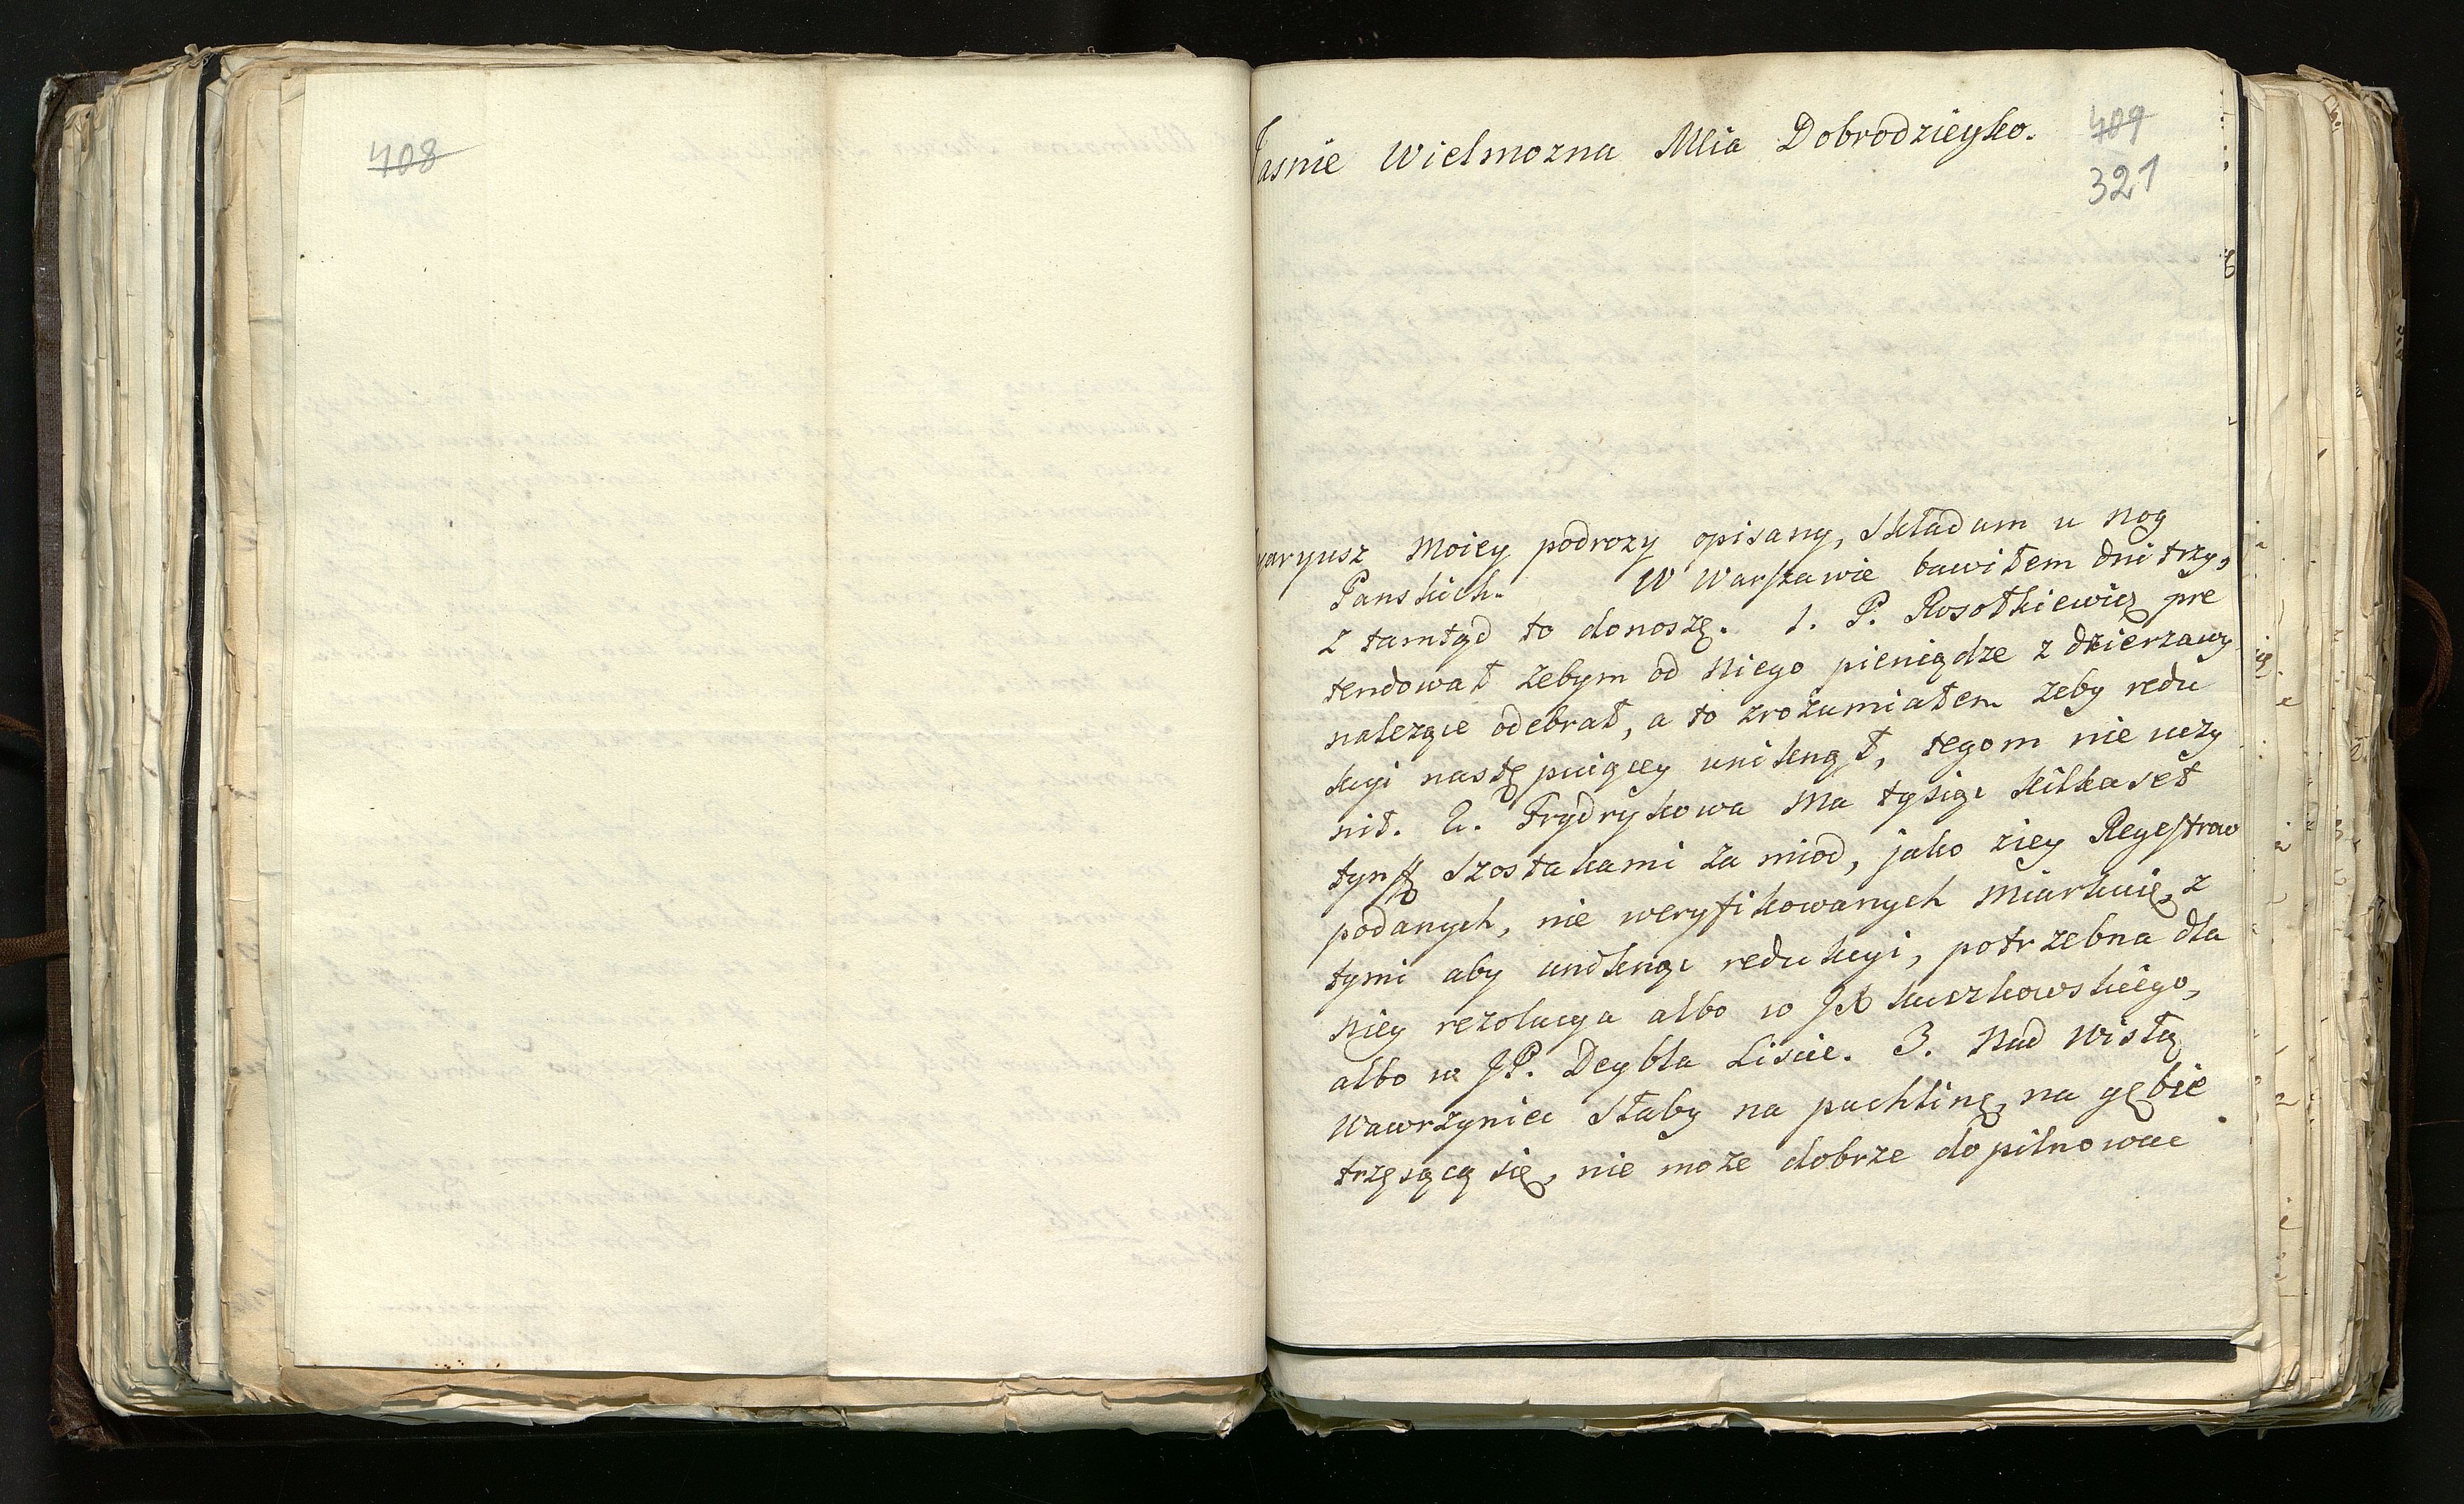 408
Jasnie Wielmozna Mcia Dobrodzieyko.
409
321
yaryusz moiey podrozy opisany, składam u nog
Panskich. W Warszawie bawiłem dni trzy,
z tamtąd to donoszę. 1. P. Rosołkiewicz pre
tendował zebym od niego pieniądze z dzierzawy
nalezące odebrał, a to zrozumiałem zeby redu
kcyi następuiącey uniknął, tegom nie uczy
nił. 2. Frydrykowa ma tysiąc kilkaset
tynff szostakami za miod, jako ziey Regestrow
podanych, nie weryfikowanych miarkuię, z
tymi aby undknąc redukcyi, potrzebna dla
niey rezolucya albo w JX Kuczkowskiego,
albo w JP. Deybla Liscie. 3. Nad Wisłą
Wawrzyniec słaby na puchlinę, na gębie
trzęsącą się, nie moze dobrze dopilnowac